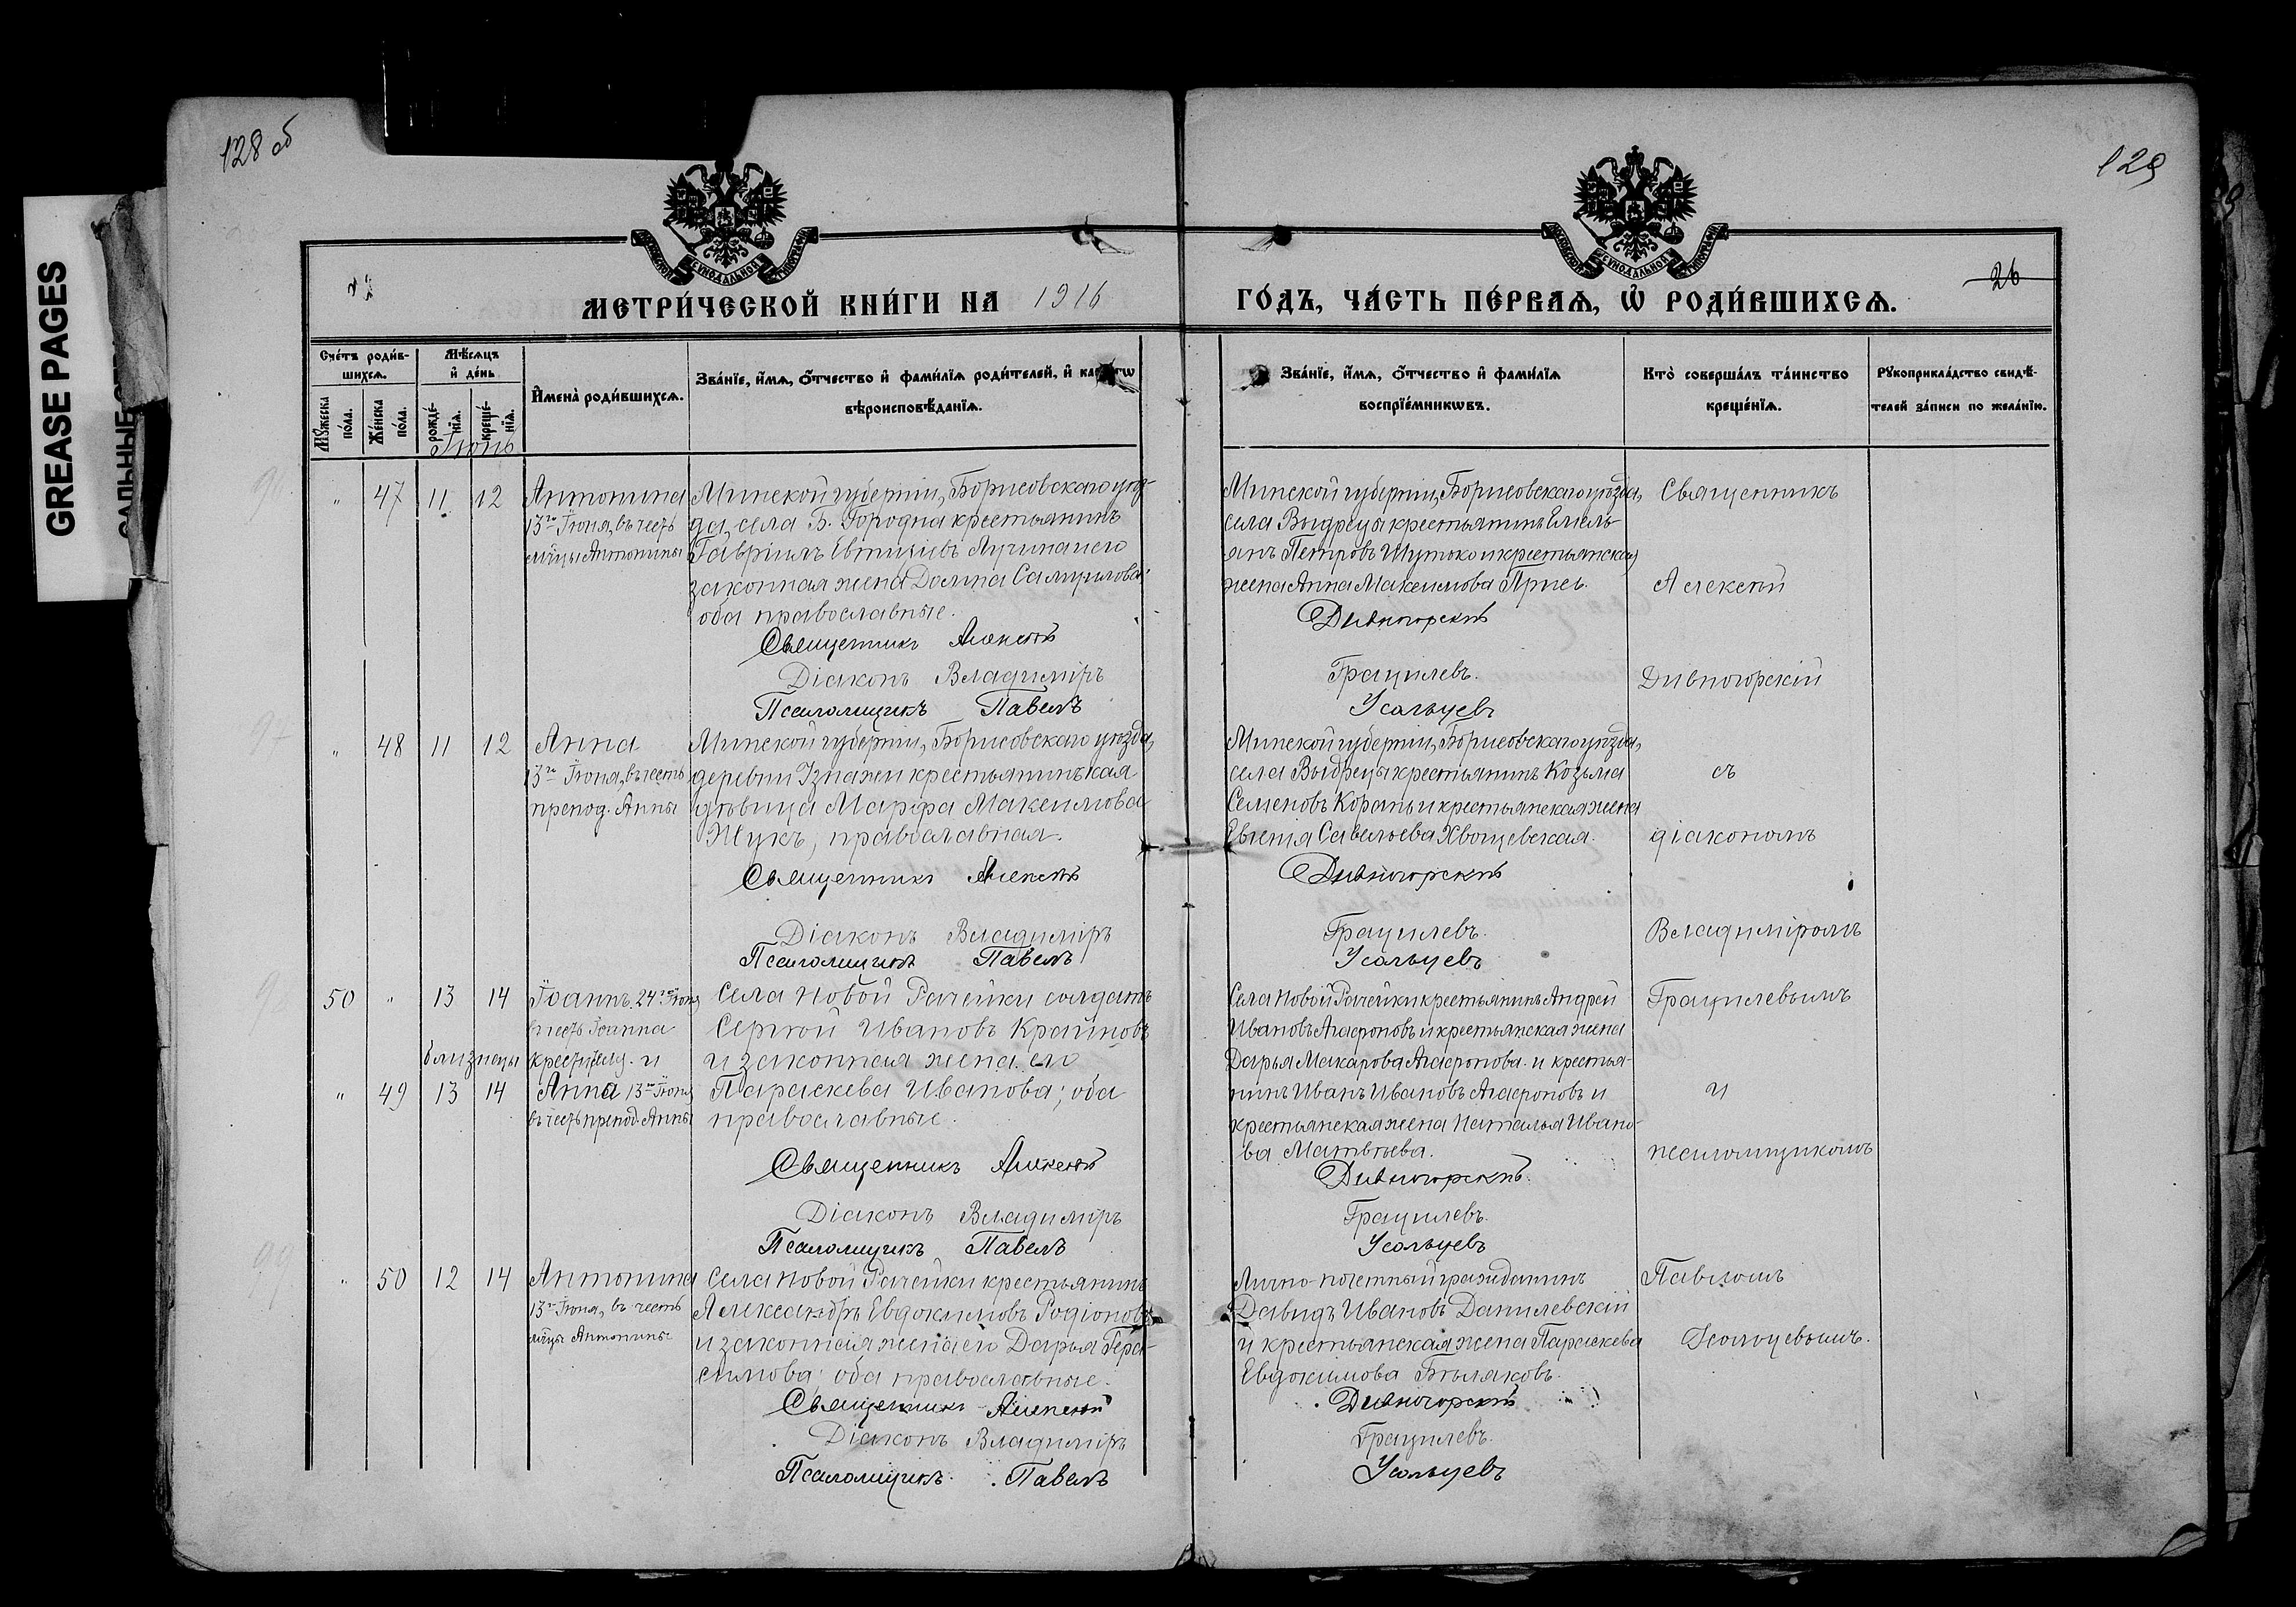 GREASE PAGES
128 об
129
26
МЕТРИ́ЧЕСКОЙ КНИ́ГИ НА 1916
ГО́ДЪ, ЧА́СТЬ ПЕ́РВАѦ, Ѿ РОДИ́ВШИХСѦ.
Сче́тъ роди́в-
шихсѧ.
Мѣ́сѧцъ
и҆ де́нь
Мꙋ́жеска по́ла.
Же́нска по́ла.
рожде́-
нїѧ.
креще́-
нїѧ.
Іюнь
И҆мена̀ роди́вшихсѧ.
Зва́нїе, и҆́мѧ, ѻ҆́тчество и҆ фами́лїѧ роди́телей, и҆
вѣроисповѣ́данїѧ.
Зва́нїе, и҆́мѧ, ѻ҆́тчество и҆ фами́лїѧ
воспрїе́мникѡвъ.
Кто̀ соверша́лъ та́инство
креще́нїѧ.
Рꙋкоприкла́дство свидѣ́-
телей за́писи по жела́нїю.
" 47 11 12
Антонина
13го Іюня, въ честь
мцы Антонины
Минской губерніи, Борисовскаго уѣз-
да, села Б. Городна крестьянинъ
Гавріилъ Евтихіевъ
законная жена Домна Самуилова;
оба православные.
Священникъ Алексѣй
Діаконъ Владиміръ
Псаломщикъ Павелъ
Минской губерніи, Борисовскаго уѣзда,
села Выдрецы крестьянинъ Емель-
янъ Петровъ Шутько и крестьянская
жена Анна Максимова
Дивногорскій
Грацилевъ.
Усольцевъ
Священникъ
Алексѣй
Дивногорскій
" 48 11 12
Анна
13го Іюня, въ честь
препод. Анны
Минской губерніи, Борисовскаго уѣзда,
деревни Изнажи крестьянинъская
дѣвица Марфа Максимова
Жукъ, православная.
Священникъ Алексѣй
Діаконъ Владиміръ
Псаломщикъ Павелъ
Минской губерніи, Борисовскаго уѣзда,
села Выдрецы крестьянинъ Козьма
Семеновъ Корань и крестьянская жена
Евгенія Савельева Хвощевская.
Дивногорскій
Грацилевъ.
Усольцевъ
съ
діакономъ
Владиміромъ
50 " 13 14
Іоаннъ 24го Іюня
въ честь Іоанна
близнецы
Крестителя. и
" 49 13 14
Анна 13го Іюня
въ честь препод. Анны
Села Новой Рачейки солдатъ
Сергѣй Ивановъ Крайновъ
и законная жена его
Параскева Иванова; оба
православные.
Священникъ Алексѣй
Діаконъ Владиміръ
Псаломщикъ Павелъ
Села Новой Рачейки крестьянинъ Андрей
Ивановъ Агафоновъ и крестьянская жена
Дарья Макарова Агафонова. и крестья-
нинъ Иванъ Ивановъ Агафоновъ и
крестьянская жена Наталья Ивано-
ва Матвѣева.
Дивногорскій.
Грацилевъ.
Усольцевъ
Грацилевымъ
и
псаломщикомъ
" 50 12 14
Антонина
13го Іюня, въ честь
мцы Антонины
Села Новой Рачейки крестьянинъ
Александръ Евдокимовъ Родіоновъ
и законная жена его Дарья Гера-
симова; оба православные.
Священникъ Алексѣй
Діаконъ Владиміръ
Псаломщикъ Павелъ
Лично-почетный гражданинъ
Давидъ Ивановъ Данилевскій
и крестьянская жена Параскева
Евдокимова Бѣляковъ.
Дивногорскій
Грацилевъ.
Усольцевъ
Павломъ
Усольцевымъ.